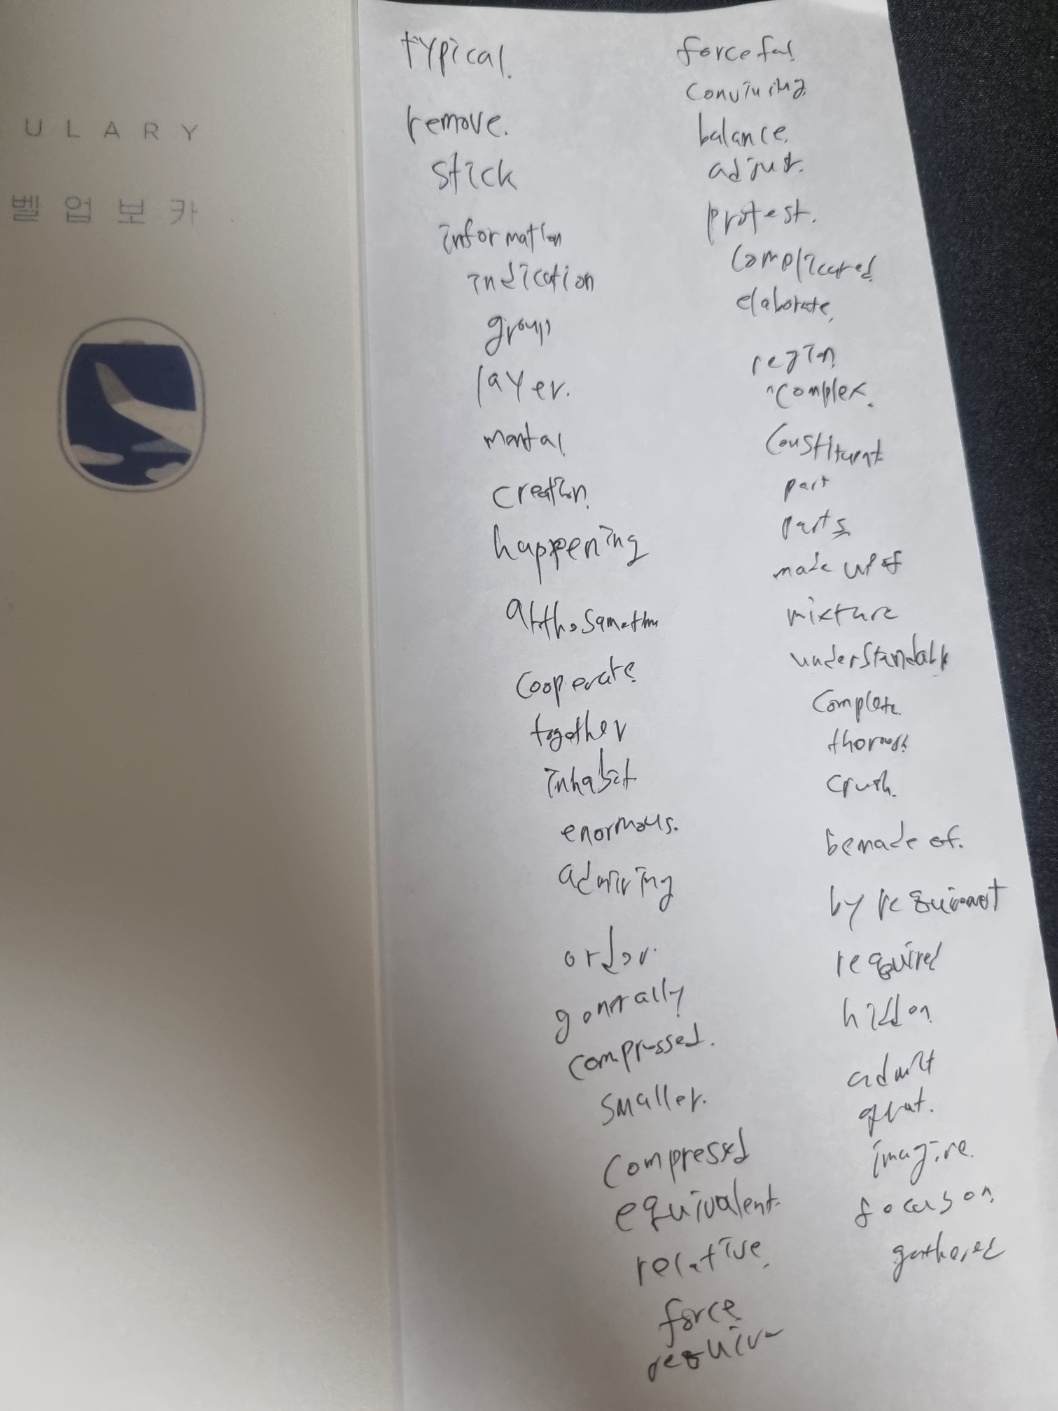 ULARY
벨업보카
typical.
remove.
stick
information
indication
group
layer.
mental
creation.
happening
at the same time
cooperate
together
inhabit
enormous.
admiring
order.
generally
compressed.
smaller.
compressed
equivalent.
relative.
force
require
forceful
convincing
balance.
adjust.
protest.
complicated
elaborate.
region
complex.
constituent
part
parts
made up of
mixture
understandable
complete.
thorough
crush.
be made of.
by requirement
required
hidden
admit
imagine.
focus on
gathered